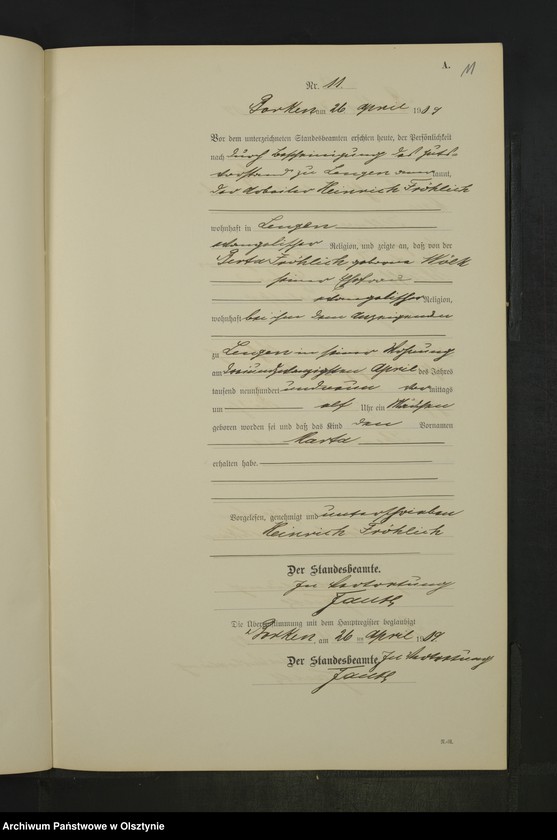 A.
11
Nr. 11.
Borken am 26 April 1909
Vor dem unterzeichneten Standesbeamten erschien heute, der Persönlichkeit
nach durch Bescheinigung des Guts-
vorstand zu Lenzen kannt,
der Arbeiter Heinrich Fröhlich
wohnhaft in Lenzen
evangelischer Religion, und zeigte an, daß von der
Berta Fröhlich geborene Wölk
seiner Ehefrau
evangelischer Religion,
wohnhaft bei ihm dem Anzeigenden
zu Lenzen in seiner Wohnung
am dreiundzwanzigsten April des Jahres
tausend neunhundert und neun vormittags
um elf Uhr ein Mädchen
geboren worden sei und daß das Kind den Vornamen
Marta
erhalten habe.
Vorgelesen, genehmigt und unterschrieben
Heinrich Fröhlich
Der Standesbeamte.
In Vertretung
Die Übereinstimmung mit dem Hauptregister beglaubigt
Borken, am 26 ten April 1909.
Der Standesbeamte. In Vertretung
Archiwum Państwowe w Olsztynie